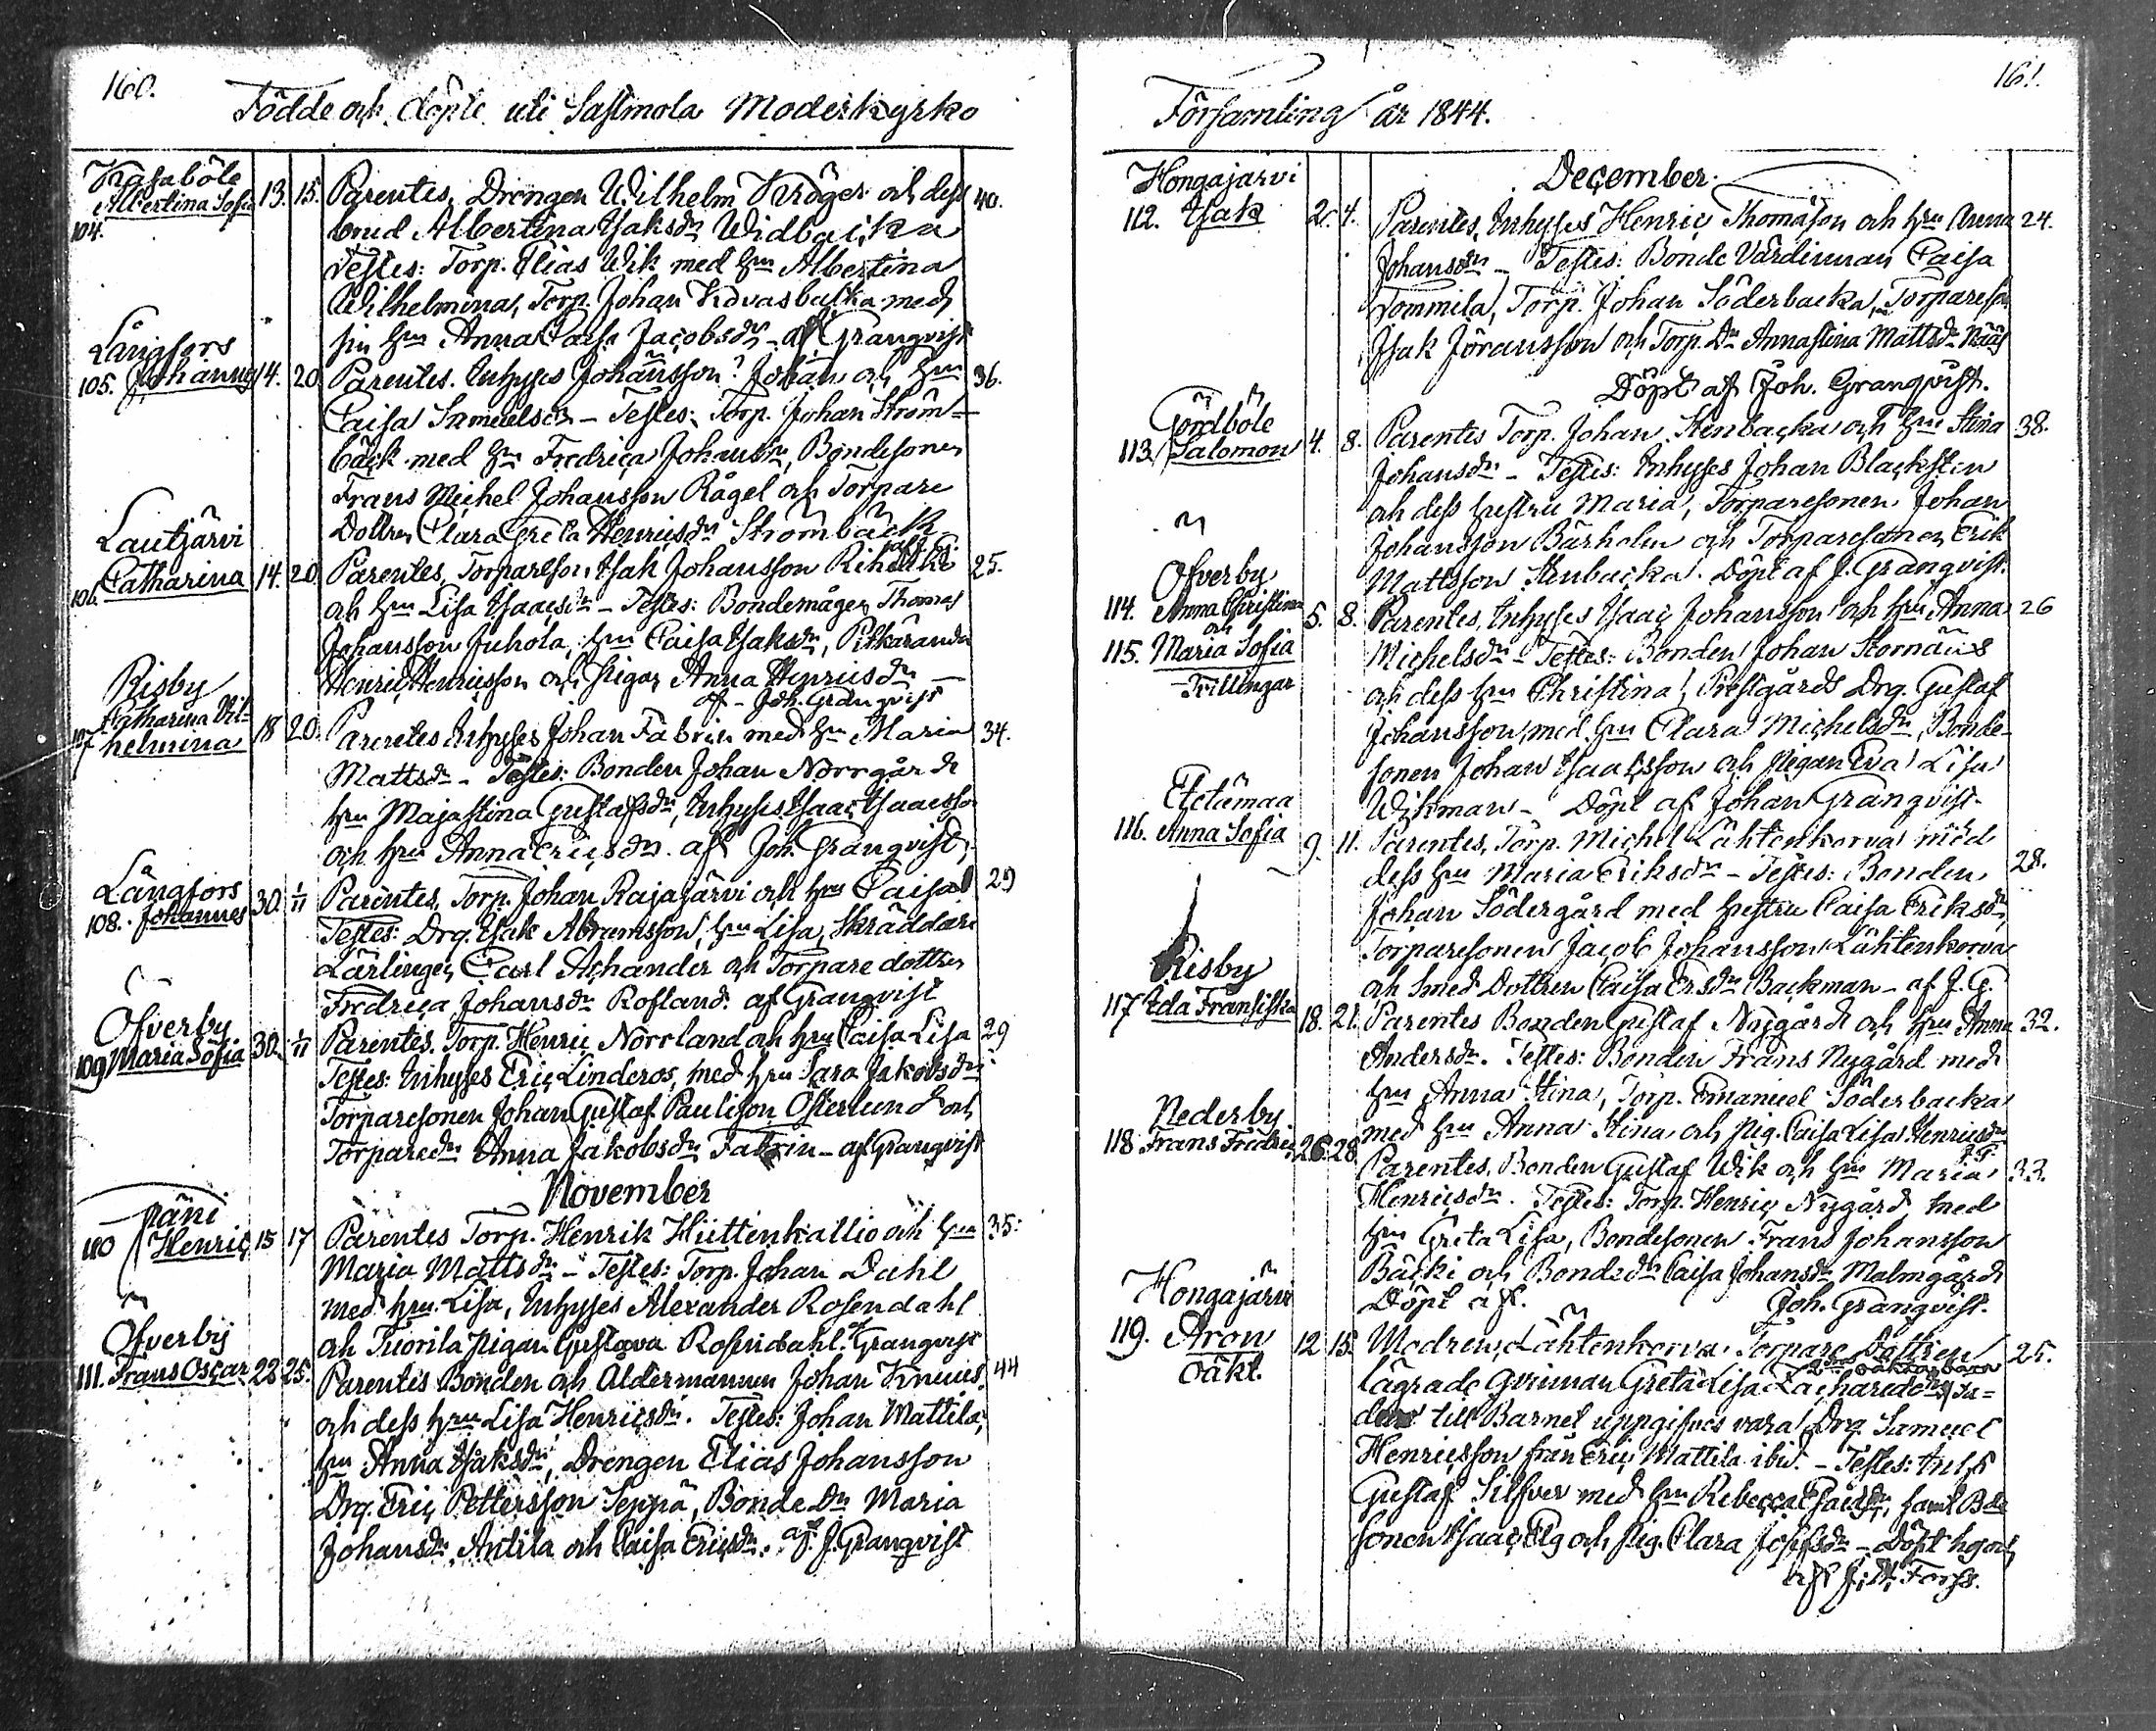 160.
Födde och döpte uti Sastmola Moderkyrko
Kasaböle
Albertina Sofia 13. 15.
104.
Parentes, Drengen Wilhelm Kröger och dess 40.
brud Albertina Isaksdr Widbacka
Testes: Torp. Elias Wik med hru Albertina
Wilhelmina, Torp. Johan Kovasbacka med
sin hru Anna Caisa Jacobsdr - af Granqvist
Långfors
105. Johannes 14. 20
Parentes. Inhyses Johansson? Johan och hru 36.
Caisa Samuelsdr - Testes: Torp. Johan Ström-
bäck med hru Fredrica Johansdr, Bondesonen
Frans Michel Johansson Rågel och Torpare
Dottren Clara Greta Henricsdr Strömbäck
Lautjärvi
106. Catharina 14. 20
Parentes, Torpareson Isak Johansson 25.
och hru Lisa Isaacsdr - Testes: Bondemågen Thomas
Johansson Juhola, hru Caisa Isaksdr, Pitkäranda
Henric Henricsson och Pigan Anna Henricsdr -
af - Joh. Granqvist
Risby
Catharina Vil-
107 helmina 18 20.
Parentes Inhyses Johan Fabrin med hru Maria 34.
Mattsdr - Testes: Bonden Johan Norrgård
hru Majastina Gustafsdr, Inhyses Isaac Isaacsson
och hru Anna Ericsdr. af Joh. Granqvist,
Långfors
108. Johannes 30. 1/11
Parentes, Torp. Johan Rajajärvi och hru Caisa 29
Testes: Drg. Isak Abramsson, hru Lisa, Skräddare
Lärlingen Carl Achander och Torpare dottren
Fredrica Johansdr Rosland. af Granqvist
Öfverby
109 Maria Sofia 30. 1/11
Parentes. Torp. Henric Norrland och hru Caisa Lisa 29
Testes: Inhyses Eric Linderos, med hru Sara Jakobsdr
Torparesonen Johan Gustaf Paulison Österlund och
Torparedr Anna Jakobsdr Fabrin - af Granqvist
November
Päni
110 Henric 15 17
Parentes Torp. Henrik Hiittenkallio och hru 35.
Maria Mattsdr - Testes: Torp. Johan Dahl
med hru Lisa, Inhyses Alexander Rosendahl
och Tuorila pigan Gustava Rosendahl. af Granqvist
Öfverby
111. Frans Oscar 22 25.
Parentes Bonden och Åldermannen Johan Knuus 44
och dess hru Lisa Henricsdr. Testes: Johan Mattila,
hru Anna Isaksdr, Drengen Elias Johansson
Drg. Eric Pettersson Seppä, Bonde Dr Maria
Johansdr Antila och Caisa Ericsdr. af J. Granqvist
161.
Församling år 1844.
December.
Hongajärvi
112. Isak 2. 4.
Parentes, Inhyses Henric Thomasson och hru Anna 24.
Johansdr - Testes: Bonde Värdinnan Caisa
Tommila, Torp. Johan Söderbacka, Torpareson
Isak Göransson och Torp. Dr Annastina Mattsdr Näs
Döpt af Joh. Granqvist.
Gördböle
113. Salomon 4. 8.
Parentes Torp. Johan Stenbacka och hru Stina 38.
Johansdr - Testes: Inhyses Johan Blacksten
och dess hustru Maria, Torparesonen Johan
Johansson Bärholm och Torparesonen Erik
Mattsson Stenbacka. Döpt af J. Granqvist.
Öfverby
114. Anna Christina
och
115. Maria Sofia 5. 8.
Trillingar
Parentes, Inhyses Isaac Johansson och hru Anna 26
Michelsdr - Testes: Bonden Johan Stornäs
och dess hru Christina, Prestgårds Drg. Gustaf
Johansson med hru Clara Michelsdr, Bonde-
sonen Johan Isaacsson och pigan Eva Lisa
Wikman - Döpt af Johan Granqvist.
Etelämaa
116. Anna Sofia 9. 11.
Parentes, Torp. Michel Lähtenkorva med
dess hru Maria Eriksdr - Testes: Bonden 28.
Johan Södergård med hustru Caisa Eriksdr,
Torparesonen Jacob Johansson Lähtenkorva
och Smed Dottren Caisa Ersdr Backman - af J. G.
Risby
117 Ida Fransiska 18. 21.
Parentes Bonden Gustaf Nygård och hru Anna 32.
Andersdr. Testes: Bonden Frans Nygård med
hru Anna Stina, Torp. Emanuel Söderbacka
med hru Anna Stina och pig. Caisa Lisa Henricsdr
J. G.
Nederby
118 Frans Fredric 26 28
Parentes. Bonden Gustaf Wik och hru Maria 33.
Henricsdr. Testes: Torp. Henric Nygård med
hru Greta Lisa, Bondesonen Frans Johansson
Bäcki och Bondedr Caisa Johansdr Malmgård
Döpt af. Joh. Granqvist.
Hongajärvi
119. Aron 12 15.
oäkt.
Modren, Lähtenkorva Torpare Dottren 25.
lägrade qvinnan Greta Lisa Zachariedr, fa-
dren till Barnet uppgifves vara Drg Samuel
Henricsson från Eric Mattila ibid. - Testes: Inhs
Gustaf Silfver med hru Rebecca Isacsdr, samt Bde
sonen Isaac Elg och pig. Clara Josefsdr - Döpt
af Forss.